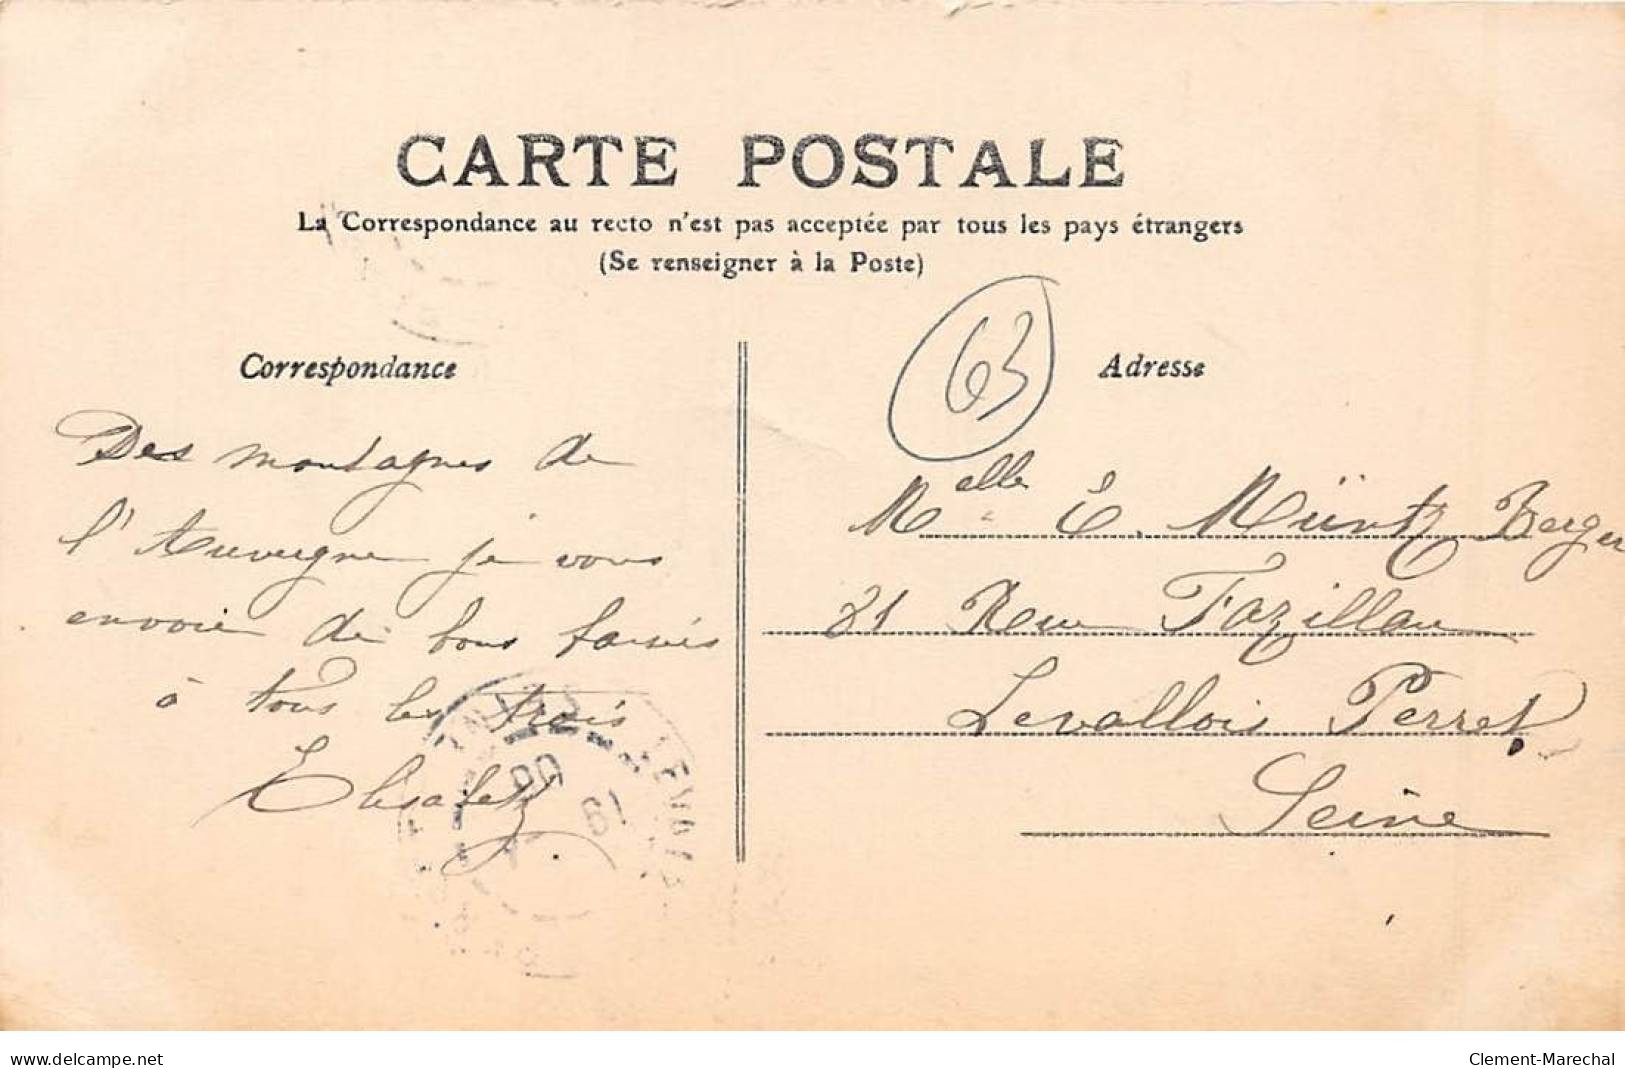 CARTE POSTALE
La Correspondance au recto n'est pas acceptée par tous les pays étrangers
(Se renseigner à la Poste)
Correspondance
Des montagnes de
l'Auvergne je vous
envoie de bons baisers
à tous les trois
Elisabeth
63
Adresse
Melle E. Müntz Berger
81 Rue Fazillau
Levallois Perret
Seine
delcampe.net
Clement-Marechal